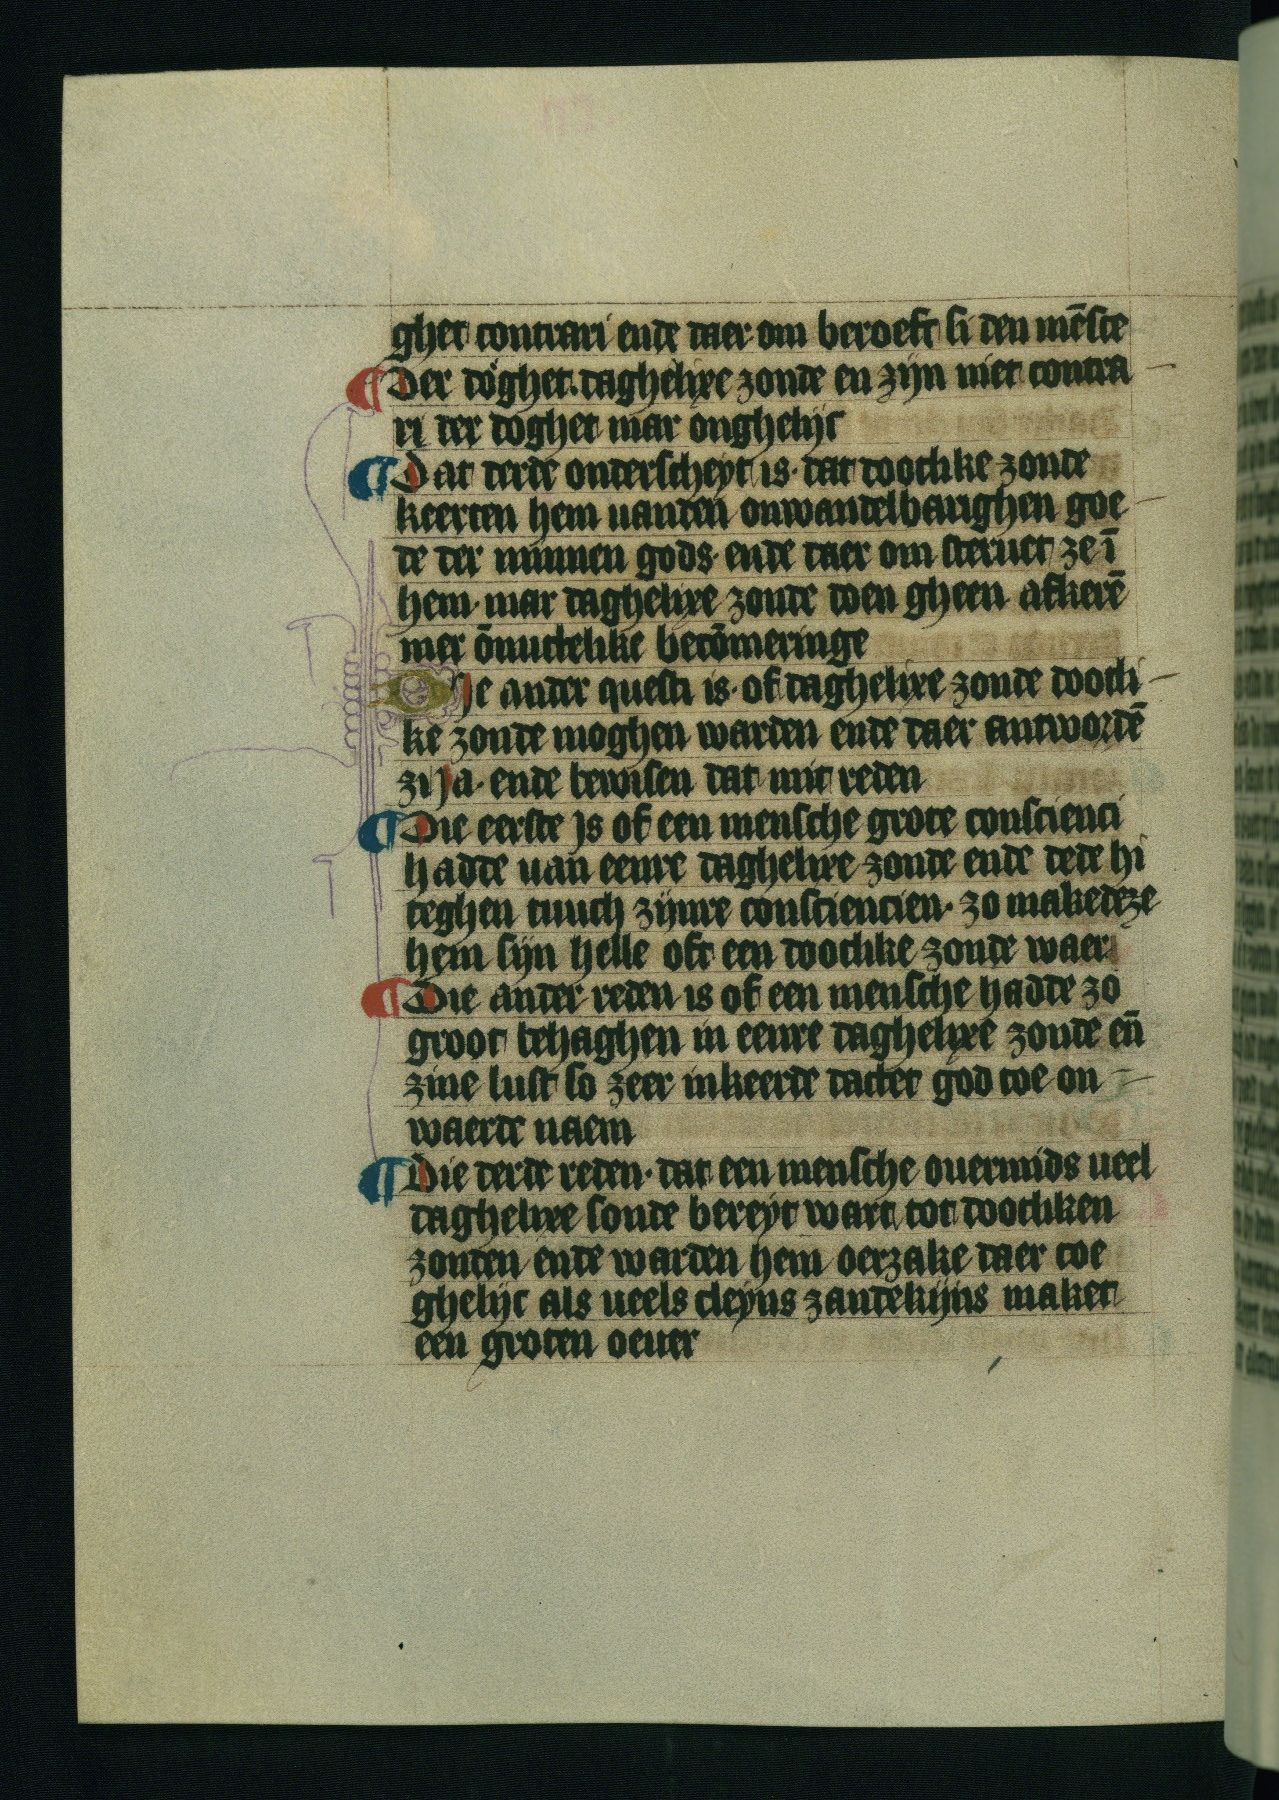 ghet contrari ende daer om beroeft si den mēsce
¶ Der doghet. daghelixe zonde en zijn niet contra-
ri der doghet mar onghelijc
¶ Dat derde onderscheyt is. dat dootlike zonde
keerten hem uanden onwandelbarighen goe-
de der minnen gods. ende daer om steruet ze ī
hem. mar daghelixe zonde doen gheen afkerē
mer ōnuttelike becōmeringe
De ander questi is. of daghelixe zonde dootli-
ke zonde moghen warden ende daer antwordē
zi Ja. ende bewisen dat mit reden
¶ Die eerste Js of een mensche grote conscienci
hadde uan eenre daghelixe zonde ende dede hi
teghen tuuch zijnre consciencien. zo makedeze
hem sijn helle oft een dootlike zonde waer
¶ Die ander reden is of een mensche hadde zo
groot behaghen in eenre daghelixe zonde eñ
zine lust so zeer inkeerde datter god toe on-
waerde naem
¶ Die derde reden. dat een mensche ouermids ueel
daghelixe sonde bereyt wart tot dootliken
zonden ende warden hem oerzake daer toe
ghelijc als ueels cleyns zandekijns maket
een groten oeuer